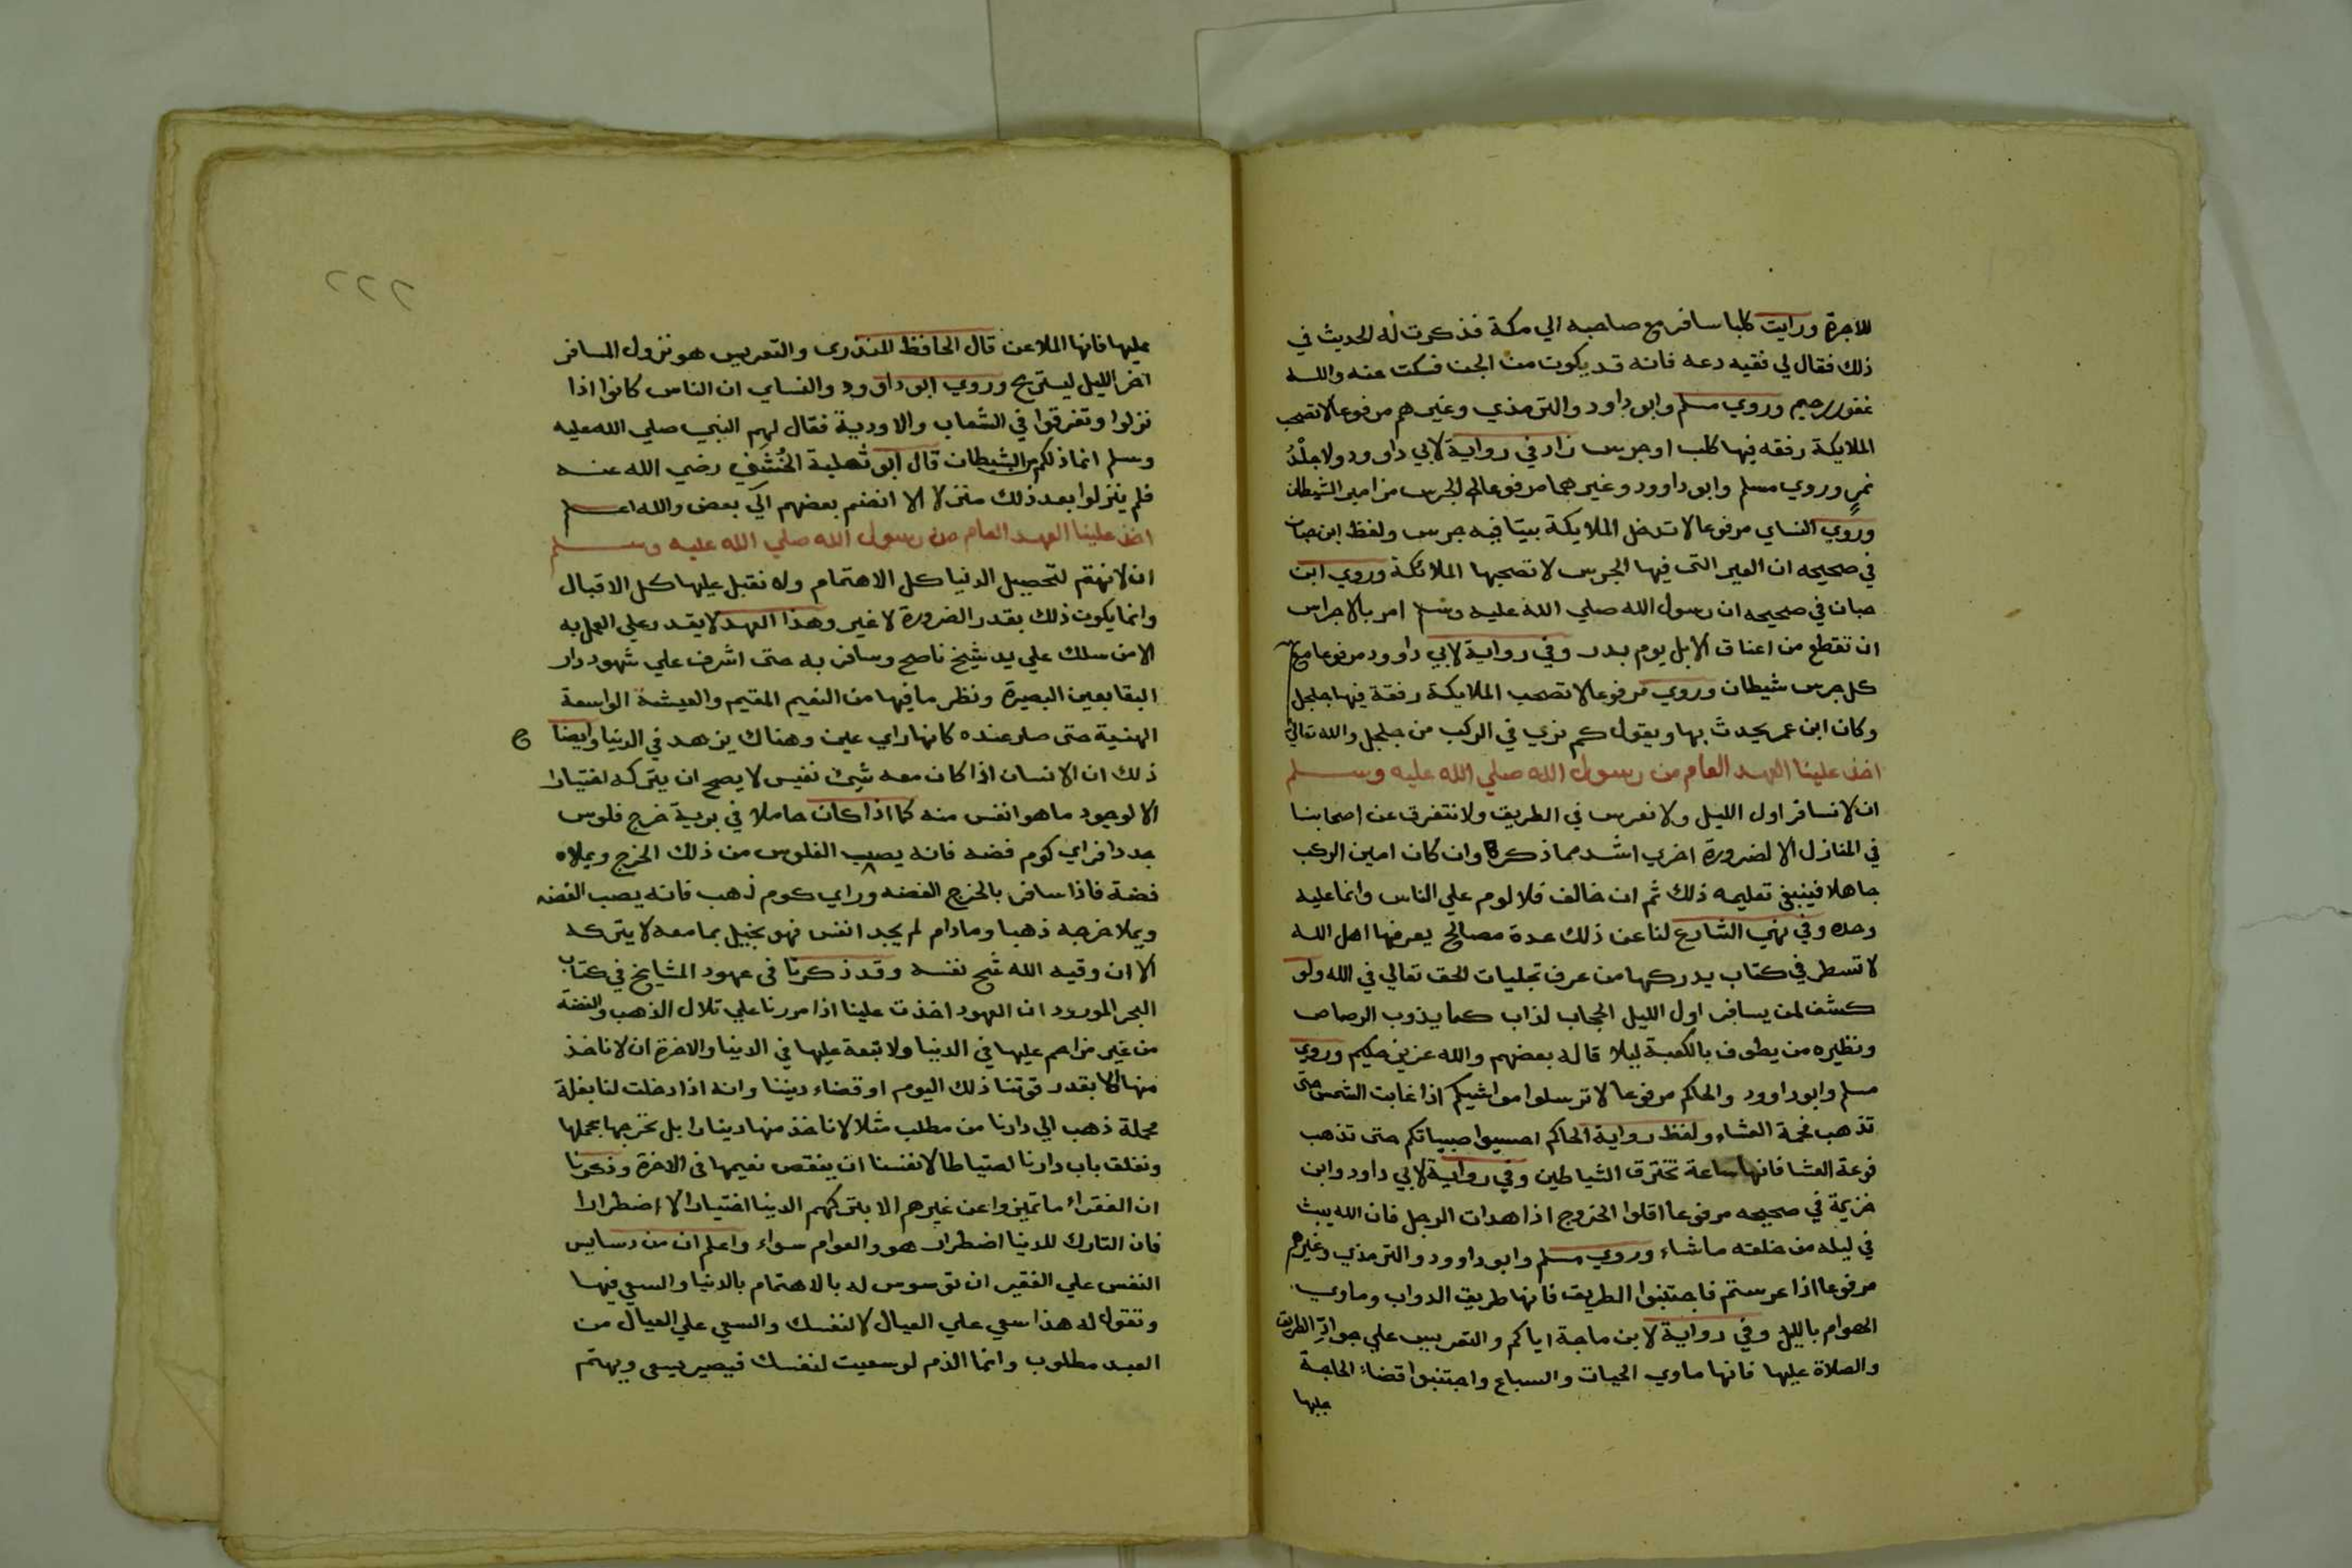 للاجرة ورايت كلبا سافر مع صاحبه الي مكة فذكرت له الحديث في
ذلك فقال لي فقيه دعه فانه قد يكون من الجن فسكت عنه والله
غفور رحيم وروي مسلم وابو داود والترمذي وغيرهم مرفوعا لا تصحب
الملايكة رفقه فيها كلب او جرس زاد في رواية لابي داوود ولا جلد
نمر وروي مسلم وابو داوود وغيرهما مرفوعا الجرس مزامير الشيطان
وروي النساي مرفوعا لا تدخل الملايكة بيتا فيه جرس ولفظ ابن حبان
في صحيحه ان العير التي فيها الجرس لا تصحبها الملائكة وروي ابن
حبان في صحيحه ان رسول الله صلي الله عليه وسلم امر بالاجراس
ان تقطع من اعناق الابل يوم بدر وفي رواية لابي داوود مرفوعا مع
كل جرس شيطان وروي مرفوعا لا تصحب الملايكة رفقة فيها جلجل
وكان ابن عمر يحدث بها ويقول كم نري في الركب من جلجل والله تعالي
اخذ علينا العهد العام من رسول الله صلي الله عليه وسلم
ان لا نسافر اول الليل ولا نعرس في الطريق ولا نتفرق عن اصحابنا
في المنازل الا لضرورة اخري اشد مما ذكرنا وان كان امين الركب
جاهلا فينبغي تعليمه ذلك ثم ان خالف فلا لوم علي الناس وانما عليه
وحده وفي نهي الشارع لنا عن ذلك عدة مصالح يعرفها اهل الله
لا تسطر في كتاب يدركها من عرف تجليات الحق تعالي في الله ولو
كشف لمن يسافر اول الليل الحجاب لذاب كما يذوب الرصاص
ونظيره من يطوف بالكعبة ليلا قاله بعضهم والله عزيز حكيم وروي
مسلم وابو داوود والحاكم مرفوعا لا ترسلوا مواشيكم اذا غابت الشمس حتي
تذهب فحمة العشاء ولفظ رواية الحاكم احبسوا صبيانكم حتي تذهب
فوعة العشا فانها ساعة تخترق الشياطين وفي رواية لابي داود وابن
خزيمة في صحيحه مرفوعا اقلوا الخروج اذا هدات الرجل فان الله يبث
في ليله من خلقه ما شاء وروي مسلم وابو داوود والترمذي وغيرهم
مرفوعا اذا عرستم فاجتنبوا الطريق فانها طريق الدواب وماوي
الهوام بالليل وفي رواية لابن ماجة اياكم والتعريس علي جواد الطريق
والصلاة عليها فانها ماوي الحيات والسباع واجتنبوا قضاء الحاجة
عليها
٢٢٢
عليها فانها الملاعن قال الحافظ المنذري والتعريس هو نزول المسافر
اخر الليل ليستريح وروي ابو داوود والنساي ان الناس كانوا اذا
نزلوا وتفرقوا في الشعاب والاودية فقال لهم النبي صلي الله عليه
وسلم انما ذلكم من الشيطان قال ابو ثعلبة الخشني رضي الله عنه
فلم ينزلوا بعد ذلك منزلا الا انضم بعضهم الي بعض والله اعلم
اخذ علينا العهد العام من رسول الله صلي الله عليه وسلم
ان لا نهتم لتحصيل الدنيا كل الاهتمام ولا نقبل عليها كل الاقبال
وانما يكون ذلك بقدر الضرورة لا غير وهذا العهد لا يقدر علي العمل به
الا من سلك علي يد شيخ ناصح وسافر به حتي اشرف علي شهود دار
البقا بعين البصيرة ونظر ما فيها من النعيم المقيم والعيشة الواسعة
الهنية حتي صار عنده كانها راي عين وهناك يزهد في الدنيا وايضا
ذلك ان الانسان اذا كان معه شيئ نفيس لا يصح ان يتركه اختيارا
الا لوجود ما هو انفس منه كما اذا كان حاملا في برية خرج فلوس
جددا فراي كوم فضه فانه يصب الفلوس من ذلك الخرج ويملاه
فضة فاذا سافر بالخرج الفضه وراي كوم ذهب فانه يصب الفضه
ويملا خرجه ذهبا وما دام لم يجد انفس فهو بخيل بما معه لا يتركه
الا ان وقيه الله شح نفسه وقد ذكرنا في عهود المشايخ في كتاب
البحر المورود ان العهود اخذت علينا اذا مررنا علي تلال الذهب والفضة
من غير مزاحم عليها في الدنيا ولا تبعة عليها في الدنيا والاخرة ان لا ناخذ
منها الا بقدر قوتنا ذلك اليوم او قضاء ديننا وانه اذا دخلت لنا بغلة
محملة ذهب الي دارنا من مطلب مثلا لا ناخذ منها دينارا بل نخرجها بحملها
ونغلق باب دارنا احتياطا لانفسنا ان ينقص نعيمها في الاخرة وذكرنا
ان الفقراء ما تميزوا عن غيرهم الا بتركهم الدنيا اختيارا لا اضطرارا
فان التارك للدنيا اضطرار هو والعوام سواء واعلم ان من دسايس
النفس علي الفقير ان توسوس له بالاهتمام بالدنيا والسعي فيها
وتقول له هذا سعي علي العيال لا لنفسك والسعي علي العيال من
العبد مطلوب وانما الذم لو سعيت لنفسك فيصير يسعي ويهتم